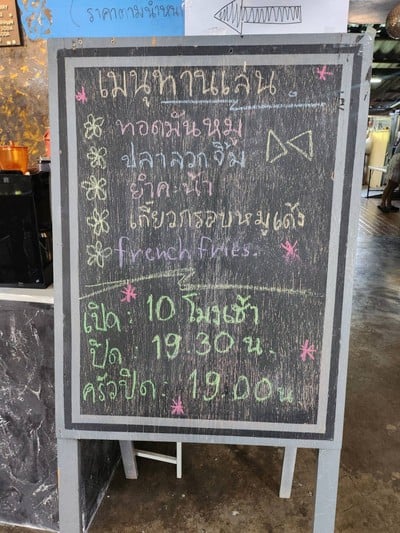 ราคาตามน้ำหนัก
เมนูทานเล่น
ทอดมันหมู
ปลาลวกจิ้ม
ยำคะน้า
เกี๊ยวกรอบหมูเด้ง
french fries.
เปิด : 10 โมงเช้า
ปิด : 19.30 น.
ครัวปิด : 19.00 น